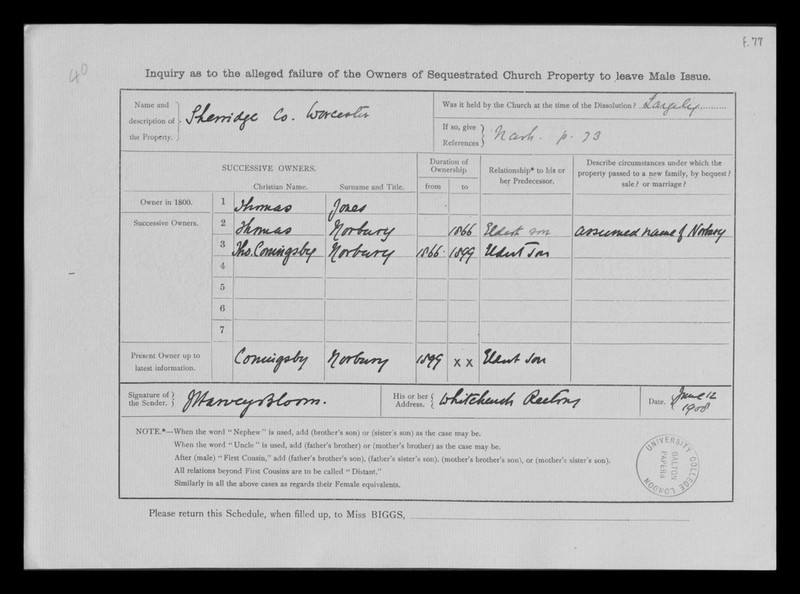 f. 77
40
Inquiry as to the alleged failure of the Owners of Sequestrated Church Property to leave Male Issue.
Name and description of the Property. Sherridge Co. Worcester
Was it held by the Church at the time of the Dissolution? Largely
If so, give References Nash. p. 73
SUCCESSIVE OWNERS.
Christian Name. Surname and Title.
Duration of Ownership
from to
Relationship* to his or her Predecessor.
Describe circumstances under which the property passed to a new family, by bequest? sale? or marriage?
Owner in 1800. 1 Thomas Jones
Successive Owners. 2 Thomas Norbury 1866 Eldest son assumed name of Norbury
3 Tho. Coningsby Norbury 1866 1899 Eldest Son
4
5
6
7
Present Owner up to latest information. Coningsby Norbury 1899 x x Eldest Son
Signature of the Sender. J Harvey Bloom.
His or her Address. Whitchurch Rectory
Date. June 12 1908
NOTE.*—When the word "Nephew" is used, add (brother's son) or (sister's son) as the case may be.
When the word "Uncle" is used, add (father's brother) or (mother's brother) as the case may be.
After (male) "First Cousin," add (father's brother's son), (father's sister's son), (mother's brother's son), or (mother's sister's son).
All relations beyond First Cousins are to be called "Distant."
Similarly in all the above cases as regards their Female equivalents.
UNIVERSITY COLLEGE LONDON
GALTON PAPERS
Please return this Schedule, when filled up, to Miss BIGGS,